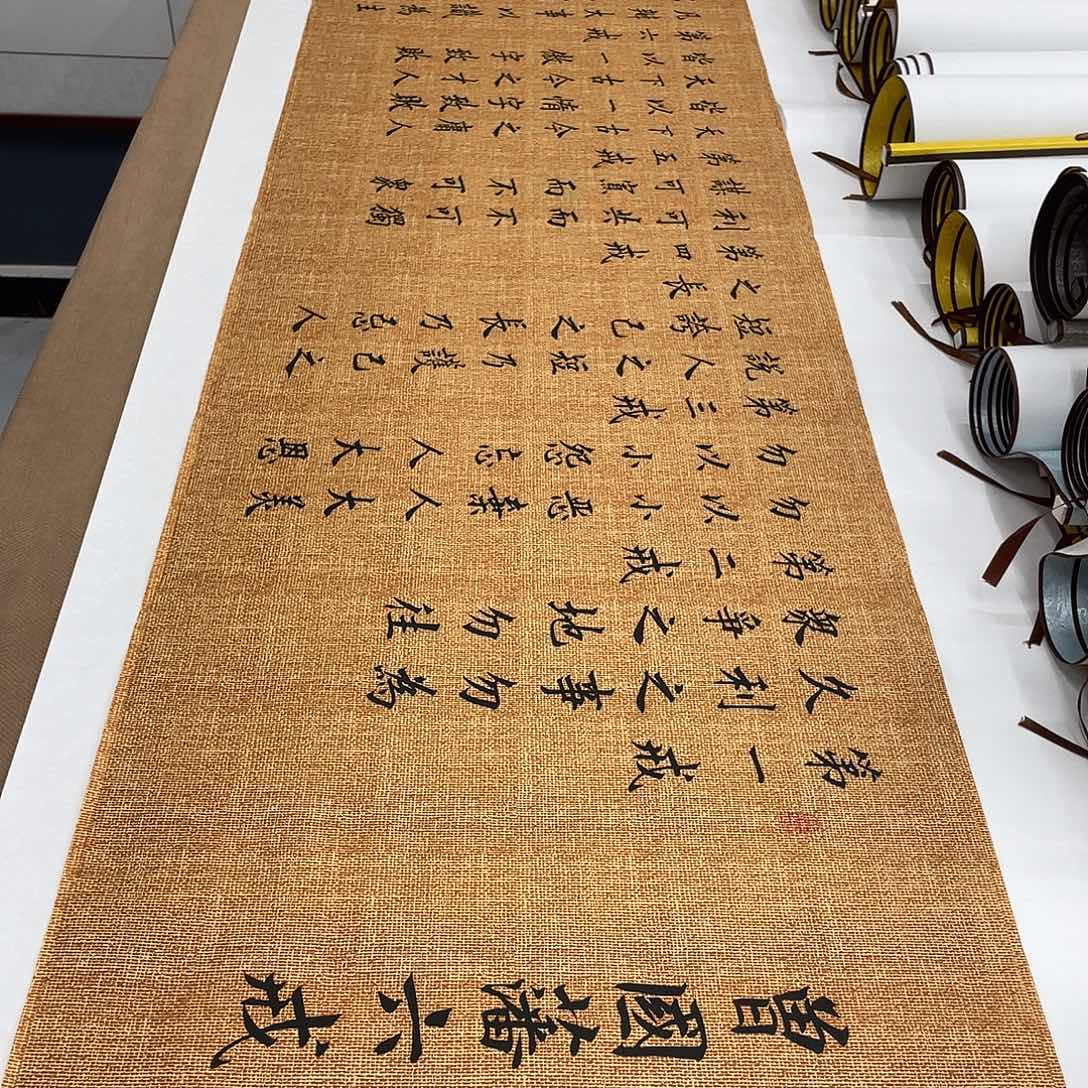 曾國藩六戒
第一戒
久利之事勿為
衆爭之地勿往
第二戒
勿以小惡棄人大美
勿以小怨忘人大恩
第三戒
說人之短乃護己之
短誇己之長乃忌人
之長
第四戒
利可共而不可獨
謀可寡而不可衆
第五戒
天下古今之庸人
皆以一惰字致敗
天下古今之才人
皆以一傲字致敗
第六戒
凡辦大事以識為主